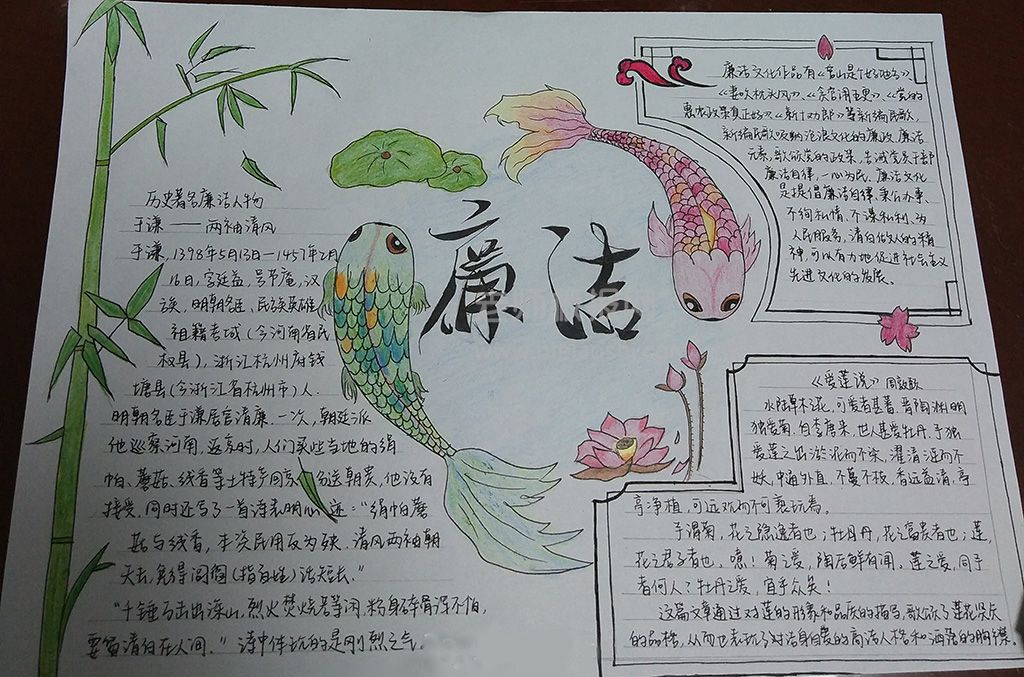 廉洁
历史著名廉洁人物
于谦——两袖清风
于谦,1398年5月13日—1457年2月
16日,字廷益,号节庵,汉
族,明朝名臣、民族英雄
祖籍考城(今河南省民
权县),浙江杭州府钱
塘县(今浙江省杭州市)人.
明朝名臣于谦居官清廉.一次,朝廷派
他巡察河南.返京时,人们买些当地的绢
帕、蘑菇、线香等土特产回京 送朝贵,他没有
接受,同时还写了一首诗表明心迹:"绢帕蘑
菇与线香,本资民用反为殃.清风两袖朝
天去,免得闾阎(指百姓)话短长."
"千锤万击出深山,烈火焚烧若等闲.粉身碎骨浑不怕,
要留清白在人间."诗中体现的是刚烈之气.
廉洁文化作品有《官山是个好地方》、
《妻吹枕头风》、《贪官闹五更》、《党的
惠农政策真正好》、《新十劝郎》等新编民歌,
新编民歌吸纳沧浪文化的廉政、廉洁
元素,歌颂党的政策,告诫党员干部
廉洁自律,一心为民.廉洁文化
是提倡廉洁自律、秉公办事、
不徇私情、不谋私利、为
人民服务、清白做人的精
神,可以有力地促进社会主义
先进文化的发展.
《爱莲说》 周敦颐
水陆草木之花,可爱者甚蕃.晋陶渊明
独爱菊.自李唐来,世人甚爱牡丹.予独
爱莲之出淤泥而不染,濯清涟而不
妖,中通外直,不蔓不枝,香远益清,亭
亭净植,可远观而不可亵玩焉.
予谓菊,花之隐逸者也;牡丹,花之富贵者也;莲,
花之君子者也.噫!菊之爱,陶后鲜有闻.莲之爱,同予
者何人?牡丹之爱,宜乎众矣!
这篇文章通过对莲的形象和品质的描写,歌颂了莲花坚贞
的品格,从而也表现了对洁身自爱的高洁人格和洒落的胸襟.